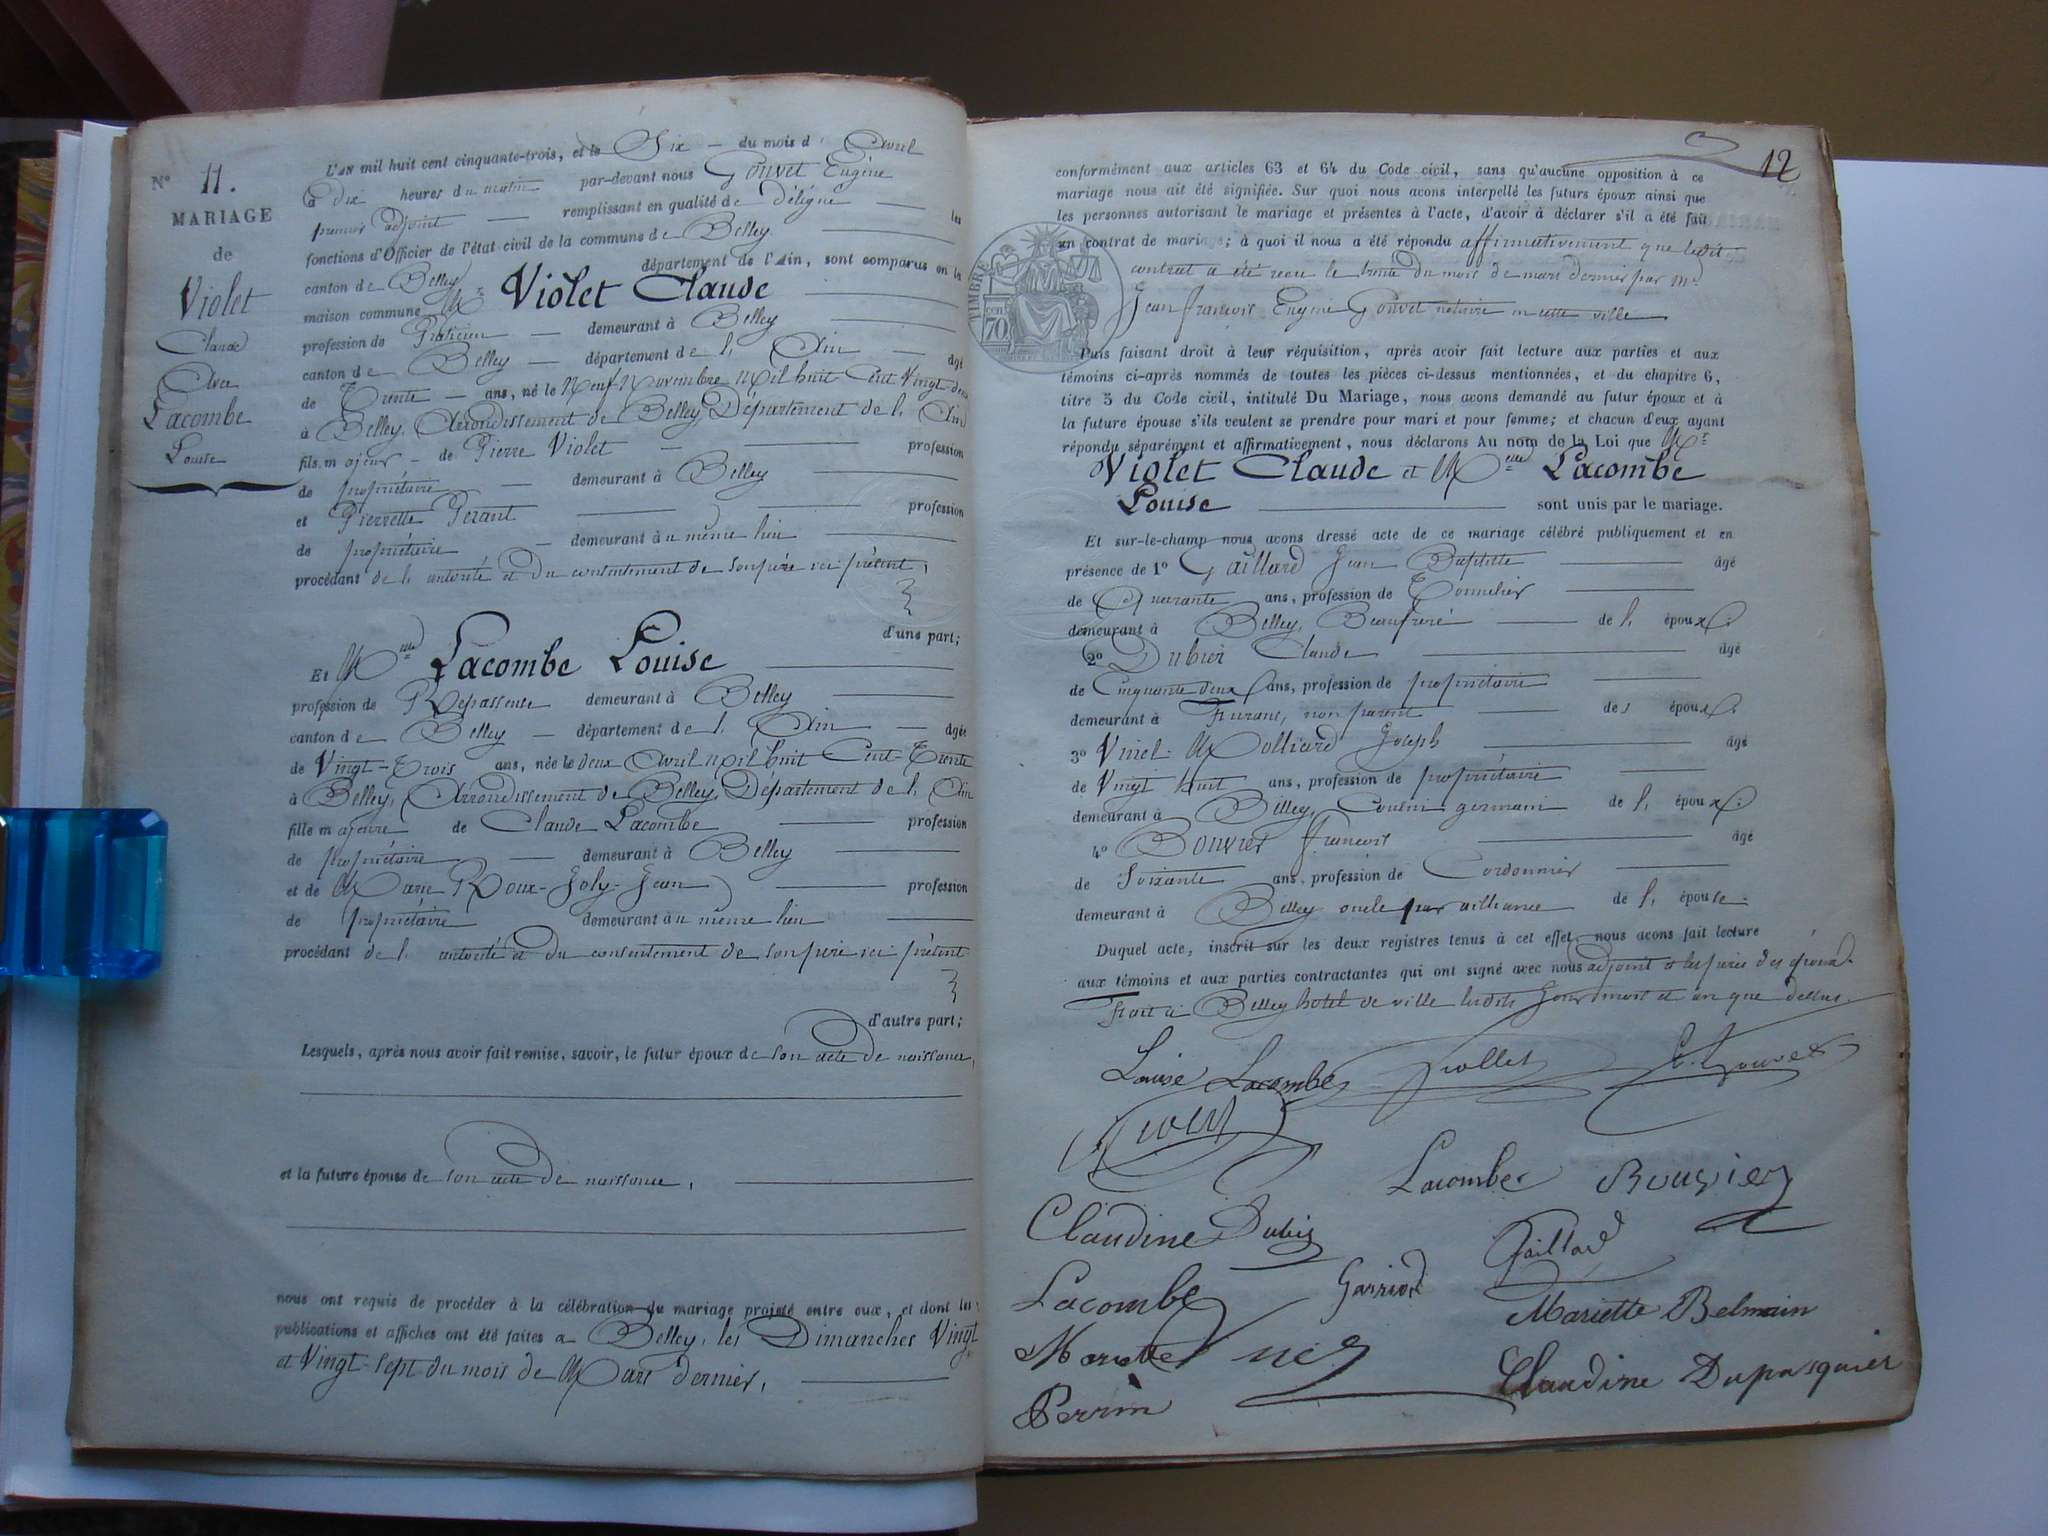 N° 11.
MARIAGE
de
Violet
Claude
Avec
Lacombe
Louise
L'AN mil huit cent cinquante-trois, et le Six du mois d' Avril
à dix heures du matin par-devant nous Gouvet Eugène
premier adjoint remplissant en qualité de délégué les
fonctions d'Officier de l'état civil de la commune de Belley
canton de Belley département de l'Ain, sont comparus en la
maison commune Mr Violet Claude
profession de Praticien demeurant à Belley
canton de Belley département de l' Ain âgé
de Trente ans, né le Neuf Novembre Mil huit Cent Vingt deux
à Belley, Arrondissement de Belley, Département de l' Ain
fils majeur de Pierre Violet profession
de propriétaire demeurant à Belley
et Pierrette Perant profession
de propriétaire demeurant àu même lieu
procédant de l' autorité et du consentement de son père ici présent,
d'une part;
Et Melle Lacombe Louise
profession de Repasseuse demeurant à Belley
canton de Belley département de l' Ain âgée
de Vingt-Trois ans, née le deux Avril Mil huit Cent Trente
à Belley, Arrondissement de Belley, Département de l' Ain
fille majeure de Claude Lacombe profession
de propriétaire demeurant à Belley
et de Marie Roux-Joly-Jean profession
de propriétaire demeurant àu même lieu
procédant de l' autorité et du consentement de son père ici présent
d'autre part;
Lesquels, après nous avoir fait remise, savoir, le futur époux de son acte de naissance,
et la future épouse de son acte de naissance,
nous ont requis de procéder à la célébration du mariage projeté entre eux, et dont les
publications et affiches ont été faites a Belley, les Dimanches Vingt
et Vingt-Sept du mois de Mars dernier,
12
conformément aux articles 63 et 64 du Code civil, sans qu'aucune opposition à ce
mariage nous ait été signifiée. Sur quoi nous avons interpellé les futurs époux ainsi que
les personnes autorisant le mariage et présentes à l'acte, d'avoir à déclarer s'il a été fait
un contrat de mariage; à quoi il nous a été répondu affirmativement que ledit
contrat a été reçu le trente du mois de mars dernier par Me
Jean françois Eugène Gouvet notaire en cette ville
TIMBRE
70 cen
Puis faisant droit à leur réquisition, après avoir fait lecture aux parties et aux
témoins ci-après nommés de toutes les pièces ci-dessus mentionnées, et du chapitre 6,
titre 5 du Code civil, intitulé Du Mariage, nous avons demandé au futur époux et à
la future épouse s'ils veulent se prendre pour mari et pour femme; et chacun d'eux ayant
répondu séparément et affirmativement, nous déclarons Au nom de la Loi que Mr
Violet Claude et Melle Lacombe
Louise sont unis par le mariage.
Et sur-le-champ nous avons dressé acte de ce mariage célébré publiquement et en
présence de 1° Gaillard Jean Baptiste âgé
de Quarante ans, profession de Tonnelier
demeurant à Belley, Beaufrère de l' époux.
2° Dubier Claude âgé
de Cinquante deux ans, profession de propriétaire
demeurant à non parent des époux.
3° Vinel Molliard Joseph âgé
de Vingt huit ans, profession de propriétaire
demeurant à Belley, Cousin germain de l' époux.
4° Bouvier françois âgé
de Soixante ans, profession de Cordonnier
demeurant à Belley oncle par alliance de l' épouse.
Duquel acte, inscrit sur les deux registres tenus à cet effet, nous avons fait lecture
aux témoins et aux parties contractantes qui ont signé avec nous adjoint et les pères des époux.
Fait à Belley hotel de ville lesdits Jour mois et an que dessus.
Louise Lacombe Viollet E. Gouvet
Lacombe Bouvier
Claudine Dubis Gaillard
Lacombe Garriod Mariette Belmain
Mariette
Perrin Claudine Dupasquier